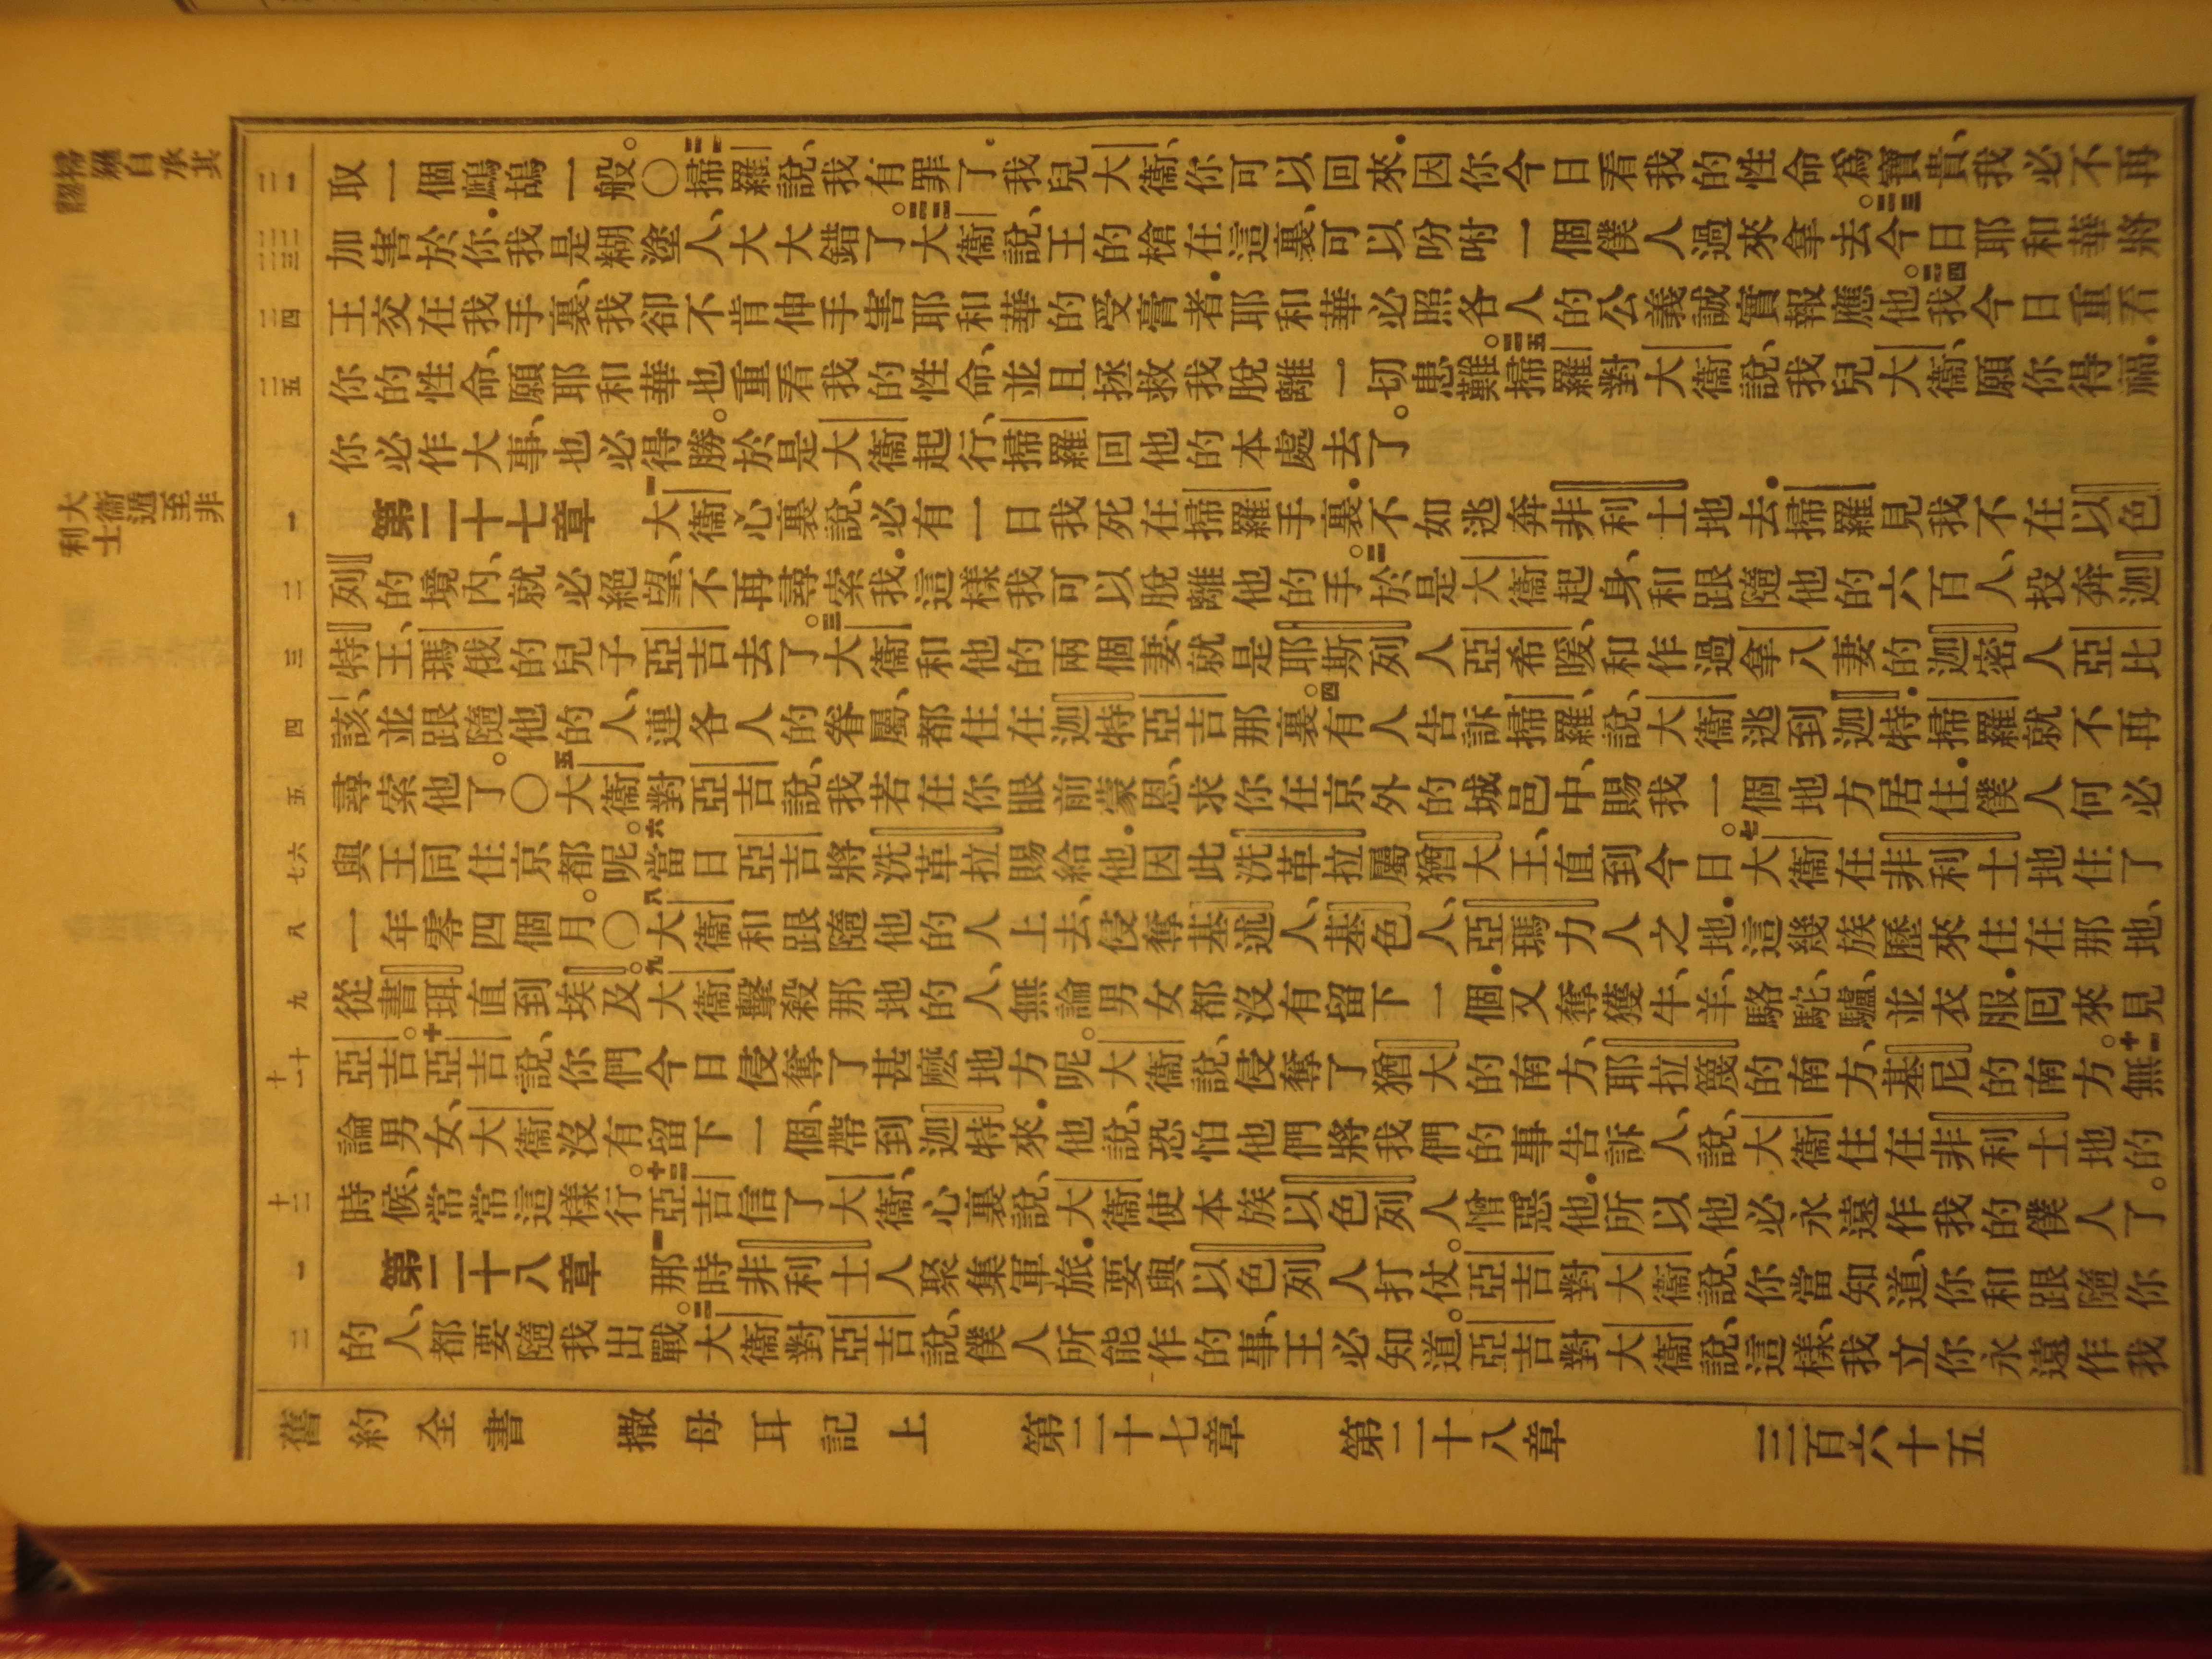 掃羅自承其
大衛遁至非
利士
二一 取一個鷓鴣一般。〇二一掃羅說、我有罪了。我兒大衛、你可以回來.因你今日看我的性命爲寶貴、我必不再
二二 二三 加害於你.我是糊塗人、大大錯了。二二大衛說、王的槍在這裏、可以吩咐一個僕人過來拿去。二三今日耶和華將
二四 王交在我手裏、我卻不肯伸手害耶和華的受膏者.耶和華必照各人的公義誠實報應他。二四我今日重看
二五 你的性命、願耶和華也重看我的性命、並且拯救我脫離一切患難。二五掃羅對大衛說、我兒大衛、願你得福.
你必作大事、也必得勝。於是大衛起行、掃羅回他的本處去了。
一 第二十七章 一大衛心裏說、必有一日我死在掃羅手裏.不如逃奔非利士地去.掃羅見我不在以色
二 列的境內、就必絕望、不再尋索我.這樣我可以脫離他的手。二於是大衛起身、和跟隨他的六百人、投奔迦
三 特王、瑪俄的兒子亞吉去了。三大衛和他的兩個妻、就是耶斯列人亞希暖、和作過拿八妻的迦密人亞比
四 該、並跟隨他的人、連各人的眷屬、都住在迦特亞吉那裏。四有人告訴掃羅、說、大衛逃到迦特.掃羅就不再
五 尋索他了。〇五大衛對亞吉說、我若在你眼前蒙恩、求你在京外的城邑中、賜我一個地方居住.僕人何必
六 七 與王同住京都呢。六當日亞吉將洗革拉賜給他.因此洗革拉屬猶大王、直到今日。七大衛在非利士地住了
八 一年零四個月。〇八大衛和跟隨他的人上去、侵奪基述人、基色人、亞瑪力人之地.這幾族歷來住在那地、
九 從書珥直到埃及。九大衛擊殺那地的人、無論男女都沒有留下一個.又奪獲牛、羊、駱駝、驢、並衣服.回來見
十 十一 亞吉。十亞吉說、你們今日侵奪了甚麽地方呢。大衛說、侵奪了猶大的南方、耶拉篾的南方、基尼的南方。十一無
論男女、大衛沒有留下一個、帶到迦特來.他說、恐怕他們將我們的事告訴人、說、大衛住在非利士地的
十二 時候、常常這樣行。十二亞吉信了大衛、心裏說、大衛使本族以色列人憎惡他.所以他必永遠作我的僕人了。
一 第二十八章 一那時非利士人聚集軍旅.要與以色列人打仗。亞吉對大衛說、你當知道、你和跟隨你
二 的人、都要隨我出戰。二大衛對亞吉說、僕人所能作的事、王必知道。亞吉對大衛說、這樣、我立你永遠作我
舊約全書 撒母耳記上 第二十七章 第二十八章 三百六十五